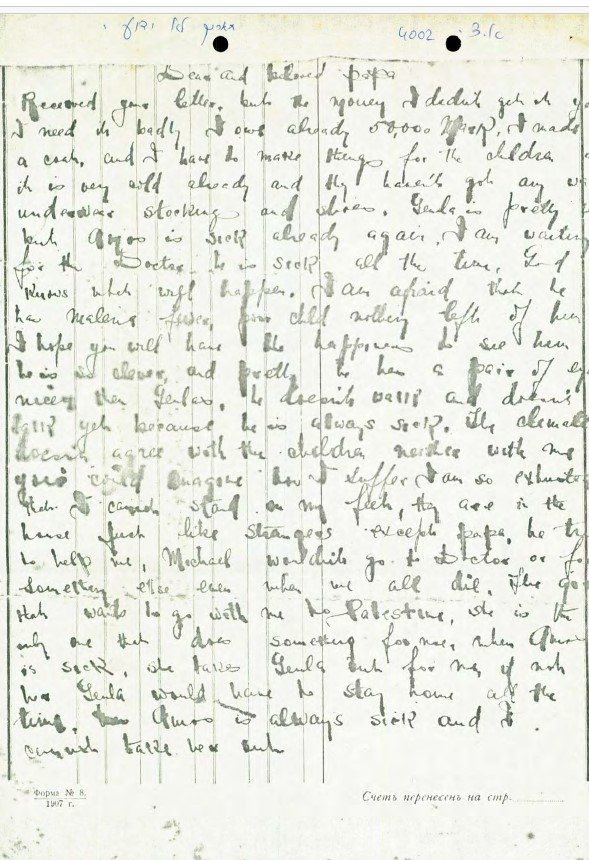 תאריך לא ידוע
4002
Dear and beloved papa
Received your letter, but the money I didn't get it
I need it badly I owe already 50,000 Mark, I made
a coat, and I have to make things for the children
it is very cold already and they haven't got any
underwear stocking and shoes. Geula is pretty
but Amos is sick already again, I am waiting
for the Doctor he is sick all the time, God
knows what will happen. I am afraid that he
has malaria fever, poor child nothing left of him
I hope you will have the happiness to see him
he is so clever, and pretty he has a pair of
nicer then Geulas, he doesn't walk and doesn't
talk yet because he is always sick. The
doesn't agree with the children neither with me
you could imagine how I suffer I am so
that I cannot stand on my feet, they are in the
house just like strangers except papa, he
to help me, Michael wouldn't go to Doctor or
something else even when we all die, The
that wants to go with me to Palestine, she is the
only one that does something for me, when Amos
is sick, she takes Geula out for me, if not
her Geula would have to stay home all the
time, Amos is always sick and I
cannot take her out
Форма № 8.
1907 г.
Счетъ перенесенъ на стр.